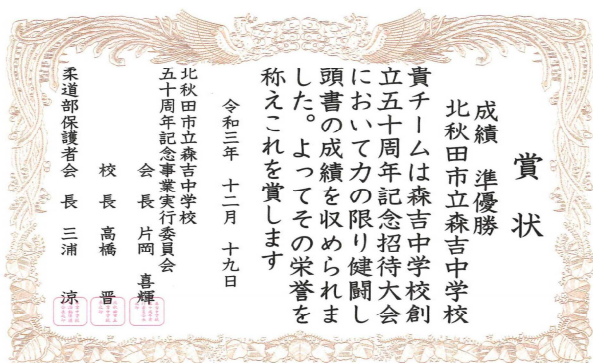 賞状
成績 準優勝
北秋田市立森吉中学校
貴チームは森吉中学校創
立五十周年記念招待大会
において力の限り健闘し
頭書の成績を収められま
した。よってその栄誉を
称えこれを賞します
令和三年 十二月 十九日
北秋田市立森吉中学校
五十周年記念事業実行委員会
会長 片岡 喜輝
校長 高橋 晋
柔道部保護者会長 三浦 涼